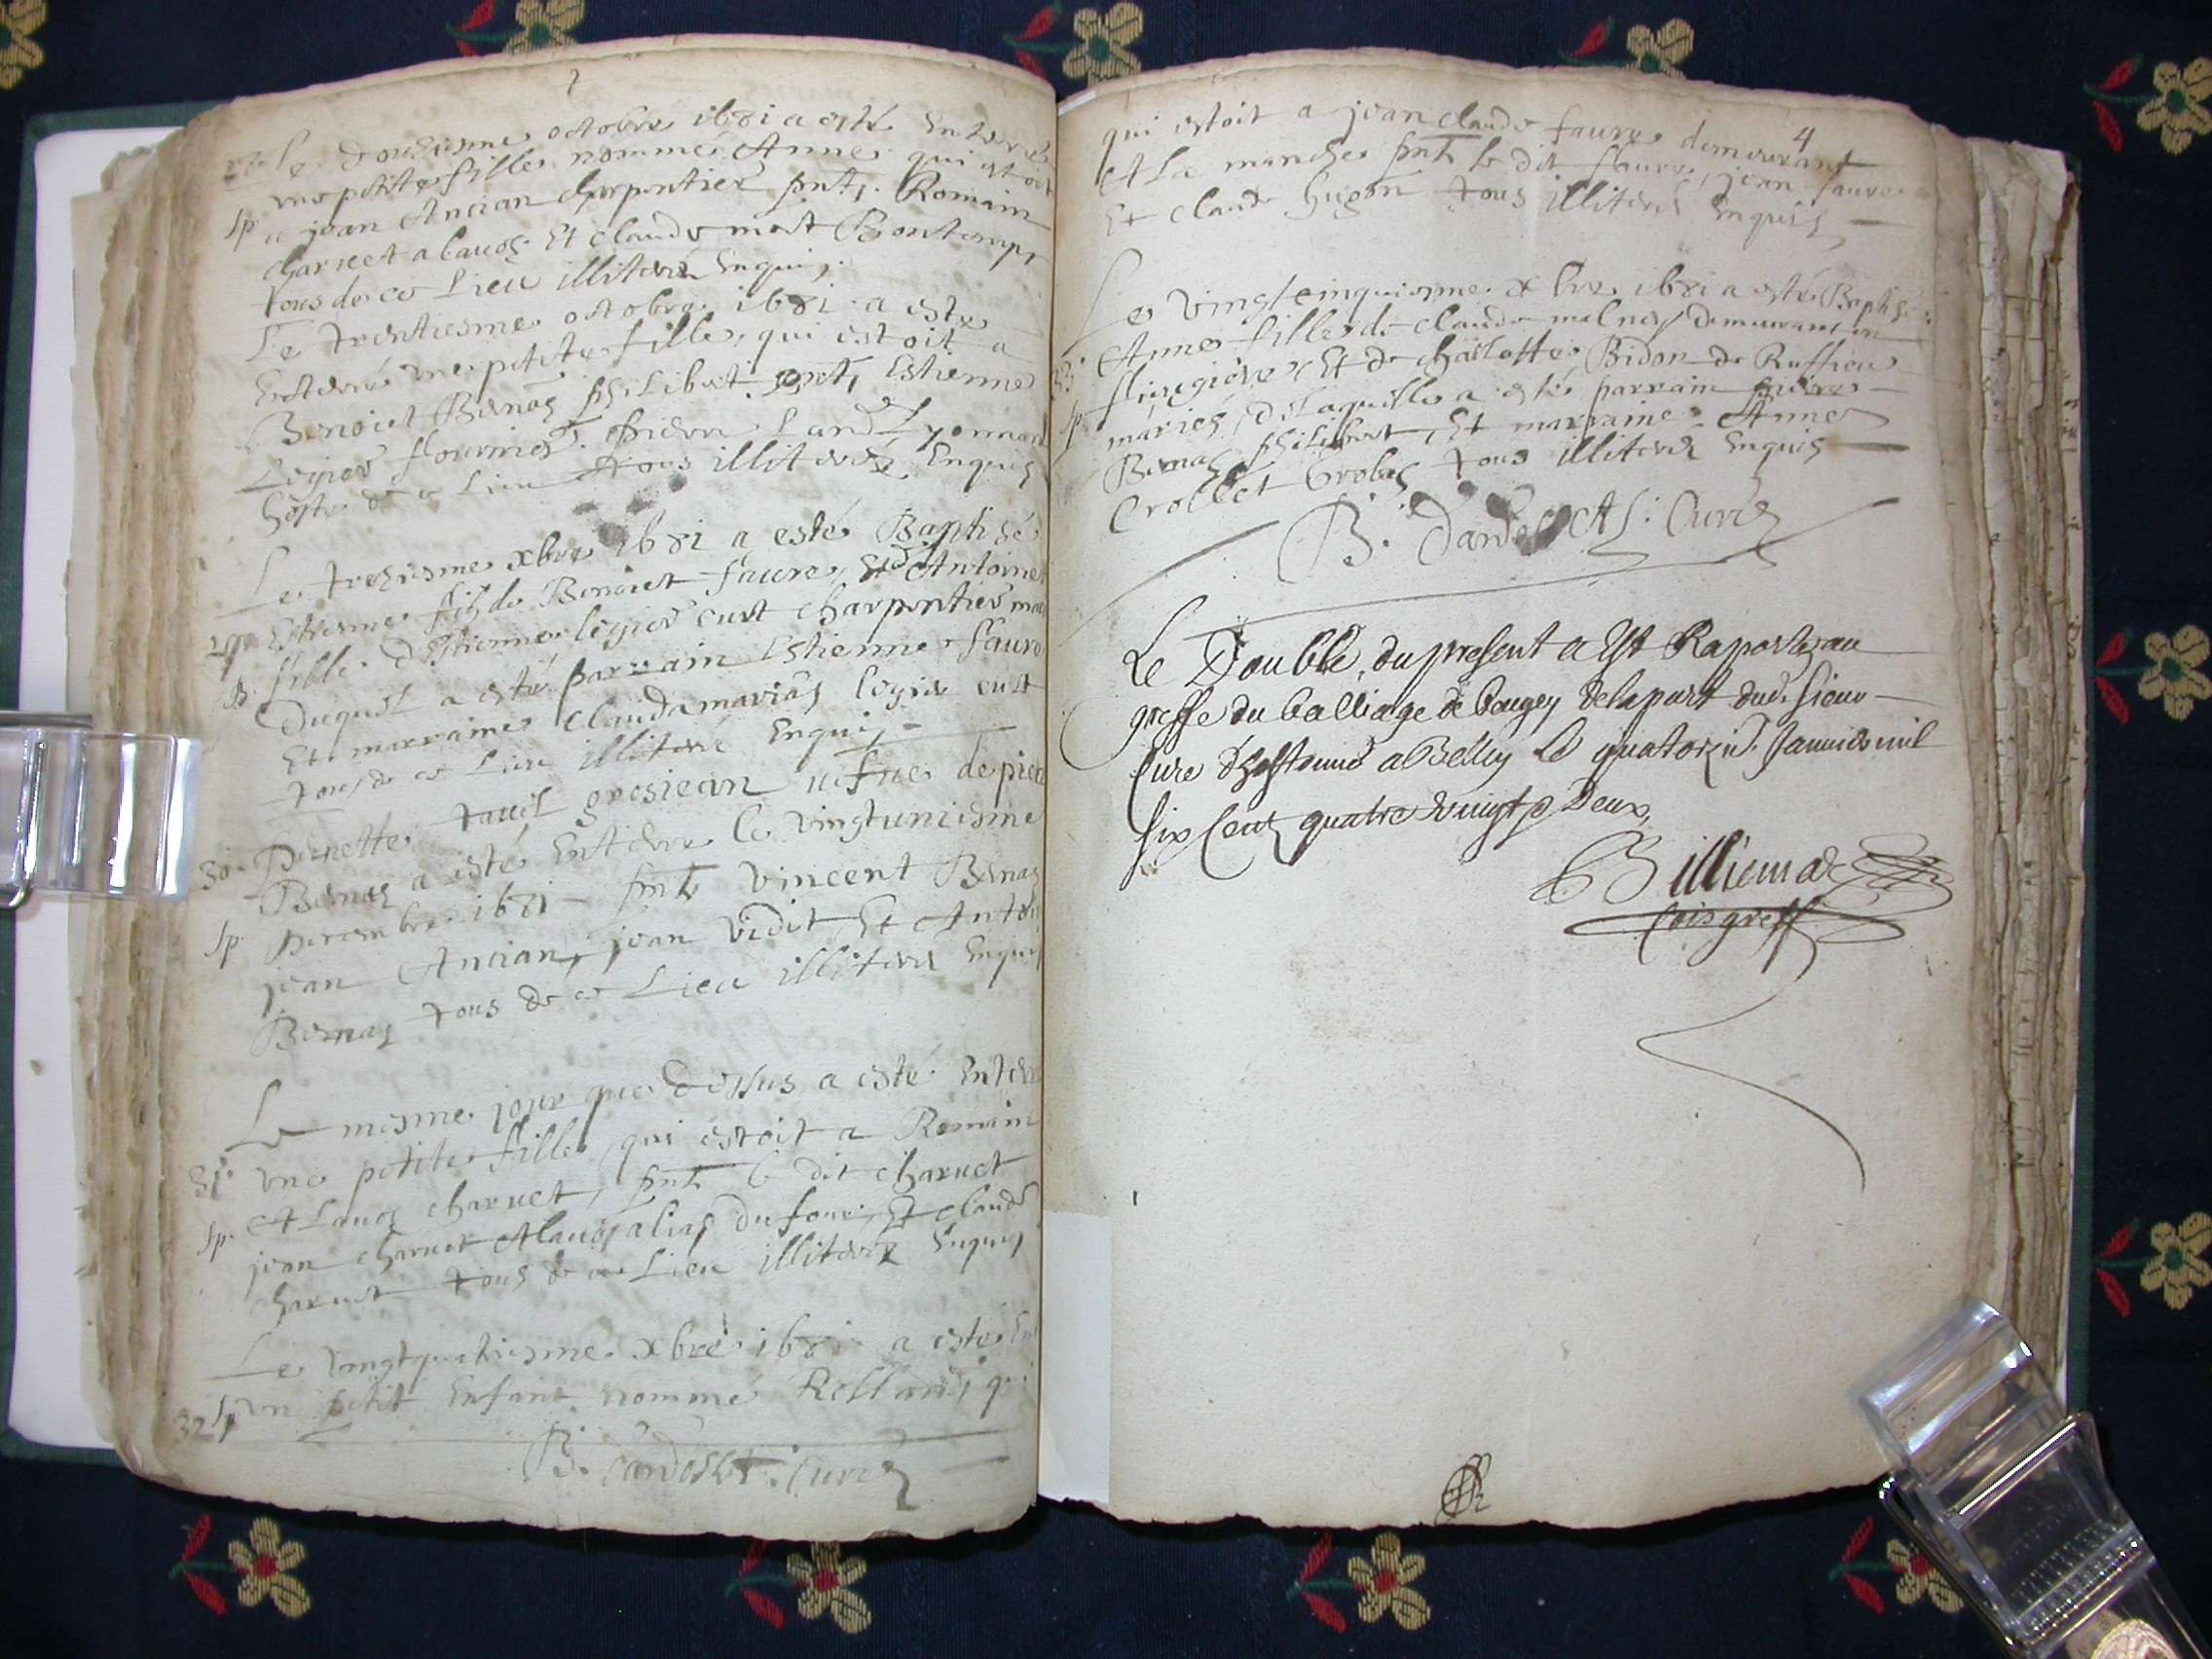 Le douziesme octobre 1681 a esté Enterré
une petite fille nommé Anne qui estoit
Sp a jean Ancian charpentier pnts Romain
charvet alavoz Et Claude mest Bontemps
tous de ce Lieu illiteré Enquis
Le trentiesme octobre 1681 a esté
Enterré une petite fille, qui estoit a
Benoict Bernaz philibert pnts Estienne
Legier flourner
hoste de ce Lieu tous illiterez Enquis
Le treziesme xbre 1681 a esté Baptisé
29 Estienne filz de Benoict faure, Et d'Antoinet
fille d'Estienne legier curt charpentier
B. Duquel a esté parrain Estienne faure
Et marraine Claudamarias legier curt
tous de ce Lieu illiteré Enquis
Pernette tavil grosjean vefue de pier
30. Bernaz a esté Enterre le vingtuniesme
Sp. Decembre 1681 pnts Vincent Bernaz
jean Ancian, jean vidit, Et Antoi
Bernaz tous de ce Lieu illiterez Enquis
Le mesme jour que dessus a esté Enterr
31. une petite fille, qui estoit a Romain
Alavoz charvet, pnts le dit charvet
Sp. jean charvet Alavoz alias du four, Et claude
charvet tous de ce Lieu illiterez Enquis
Le vingtquatriesme xbre 1681 a esté En
32 Sp un petit Enfant nommé Relland, qui
B. Dardel Curé
4
qui estoit a jean claude faure demeurant
A La manche pnts le dit faure, jean faure
Et claude hugon tous illiterez Enquis
Le vingtcinquiesme xbre 1681 a esté Baptisé
Anne fille de claude molner, demeurant en
33 flingiere Et de charlotte Bidon de Ruffieu
Sp mariés, de laquelle a esté parrain pierre
Bernaz philibert, Et marraine Anne
Crollet Grobas tous illiterez Enquis
B. Dardel Curé
Le Double du present a Esté Raporté au
greffe du Balliage de Bougey de la part dud. Sieur
Cure d'hostonne a Belley le quatorzie. Janvier mil
six Cent quatre vingt Deux,
Billiemaz
Coisgreff